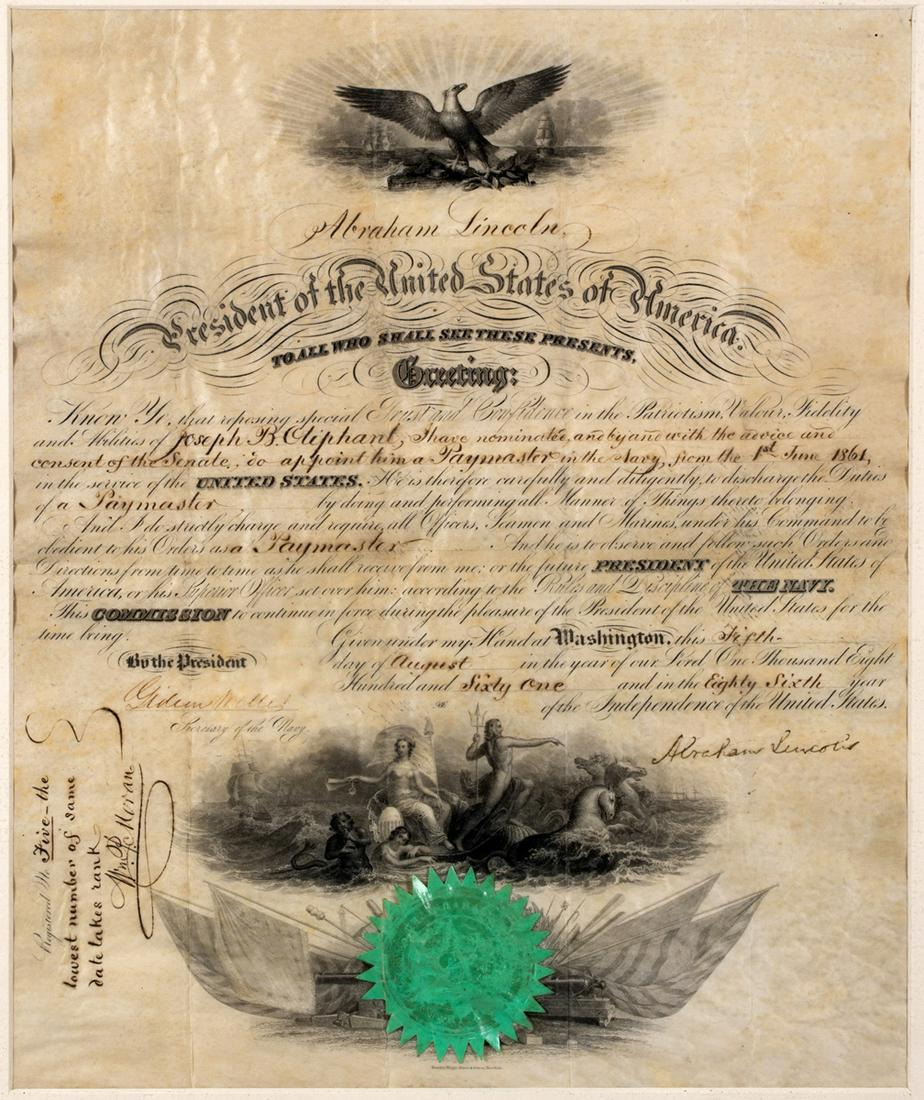 Abraham Lincoln,
President of the United States of America.
TO ALL WHO SHALL SEE THESE PRESENTS,
Greeting:
Know Ye, that reposing special Trust and Confidence in the Patriotism, Valour, Fidelity
and Abilities of Joseph B. Oliphant, I have nominated, and by and with the advice and
consent of the Senate, do appoint him a Paymaster in the Navy, from the 1st June 1861,
in the service of the UNITED STATES. He is therefore carefully and diligently, to discharge the Duties
of a Paymaster by doing and performing all Manner of Things thereto belonging.
And I do strictly charge and require all Officers, Seamen and Marines, under his Command to be
obedient to his Orders as a Paymaster And he is to observe and follow such Orders and
Directions from time to time as he shall receive from me; or the future PRESIDENT of the United States of
America, or his Superior Officer set over him; according to the Rules and Discipline of THE NAVY.
This COMMISSION to continue in force during the pleasure of the President of the United States for the
time being.
Given under my Hand at Washington, this Fifth
day of August in the year of our Lord One Thousand Eight
Hundred and Sixty One and in the Eighty Sixth year
of the Independence of the United States.
By the President
Gideon Welles
Secretary of the Navy.
Abraham Lincoln
Registered No. Five - the
lowest number of same
date takes rank
Wm. P. Moran